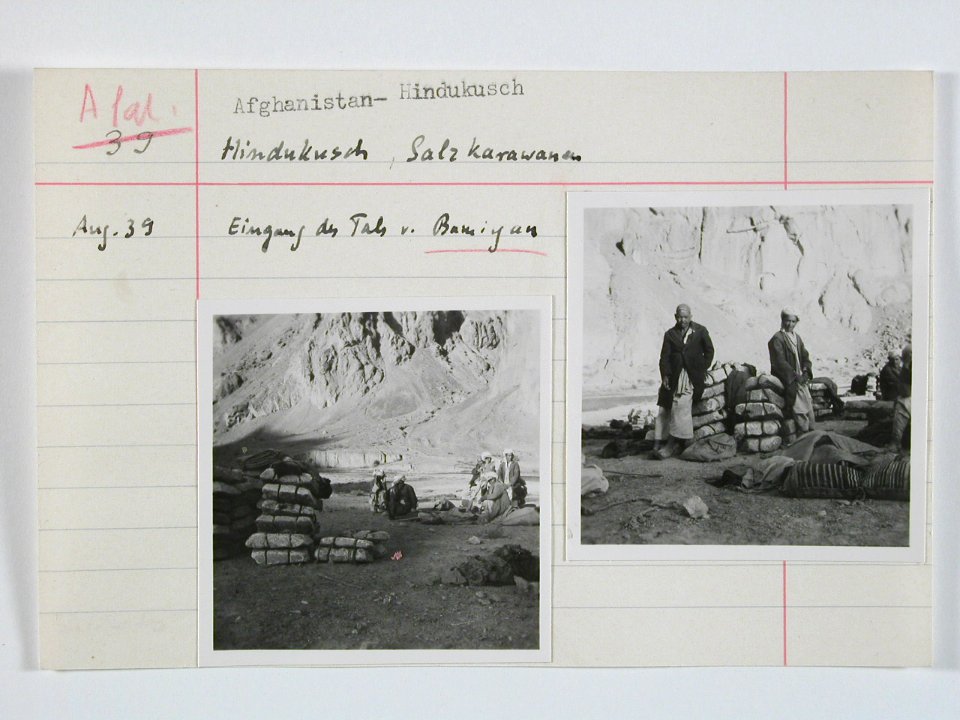 Afghanistan- Hindukusch
39
Hindukusch, Salzkarawanen
Aug. 39
Eingang des Tals v. Bamiyan